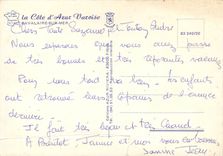 la Côte d'Azur Varoise
CAVALAIRE-SUR-MER
Chers Tante Suzanne et Tonton André
Nous espérons que vous avez passé
de très bonnes et très reposantes vacances
Pour nous tout va très bien. Les
enfants ont retrouvé leurs copains de l'année
dernière.
Il fait très beau et très Chaud.
A Bientôt. Jamie et moi vous embrassons